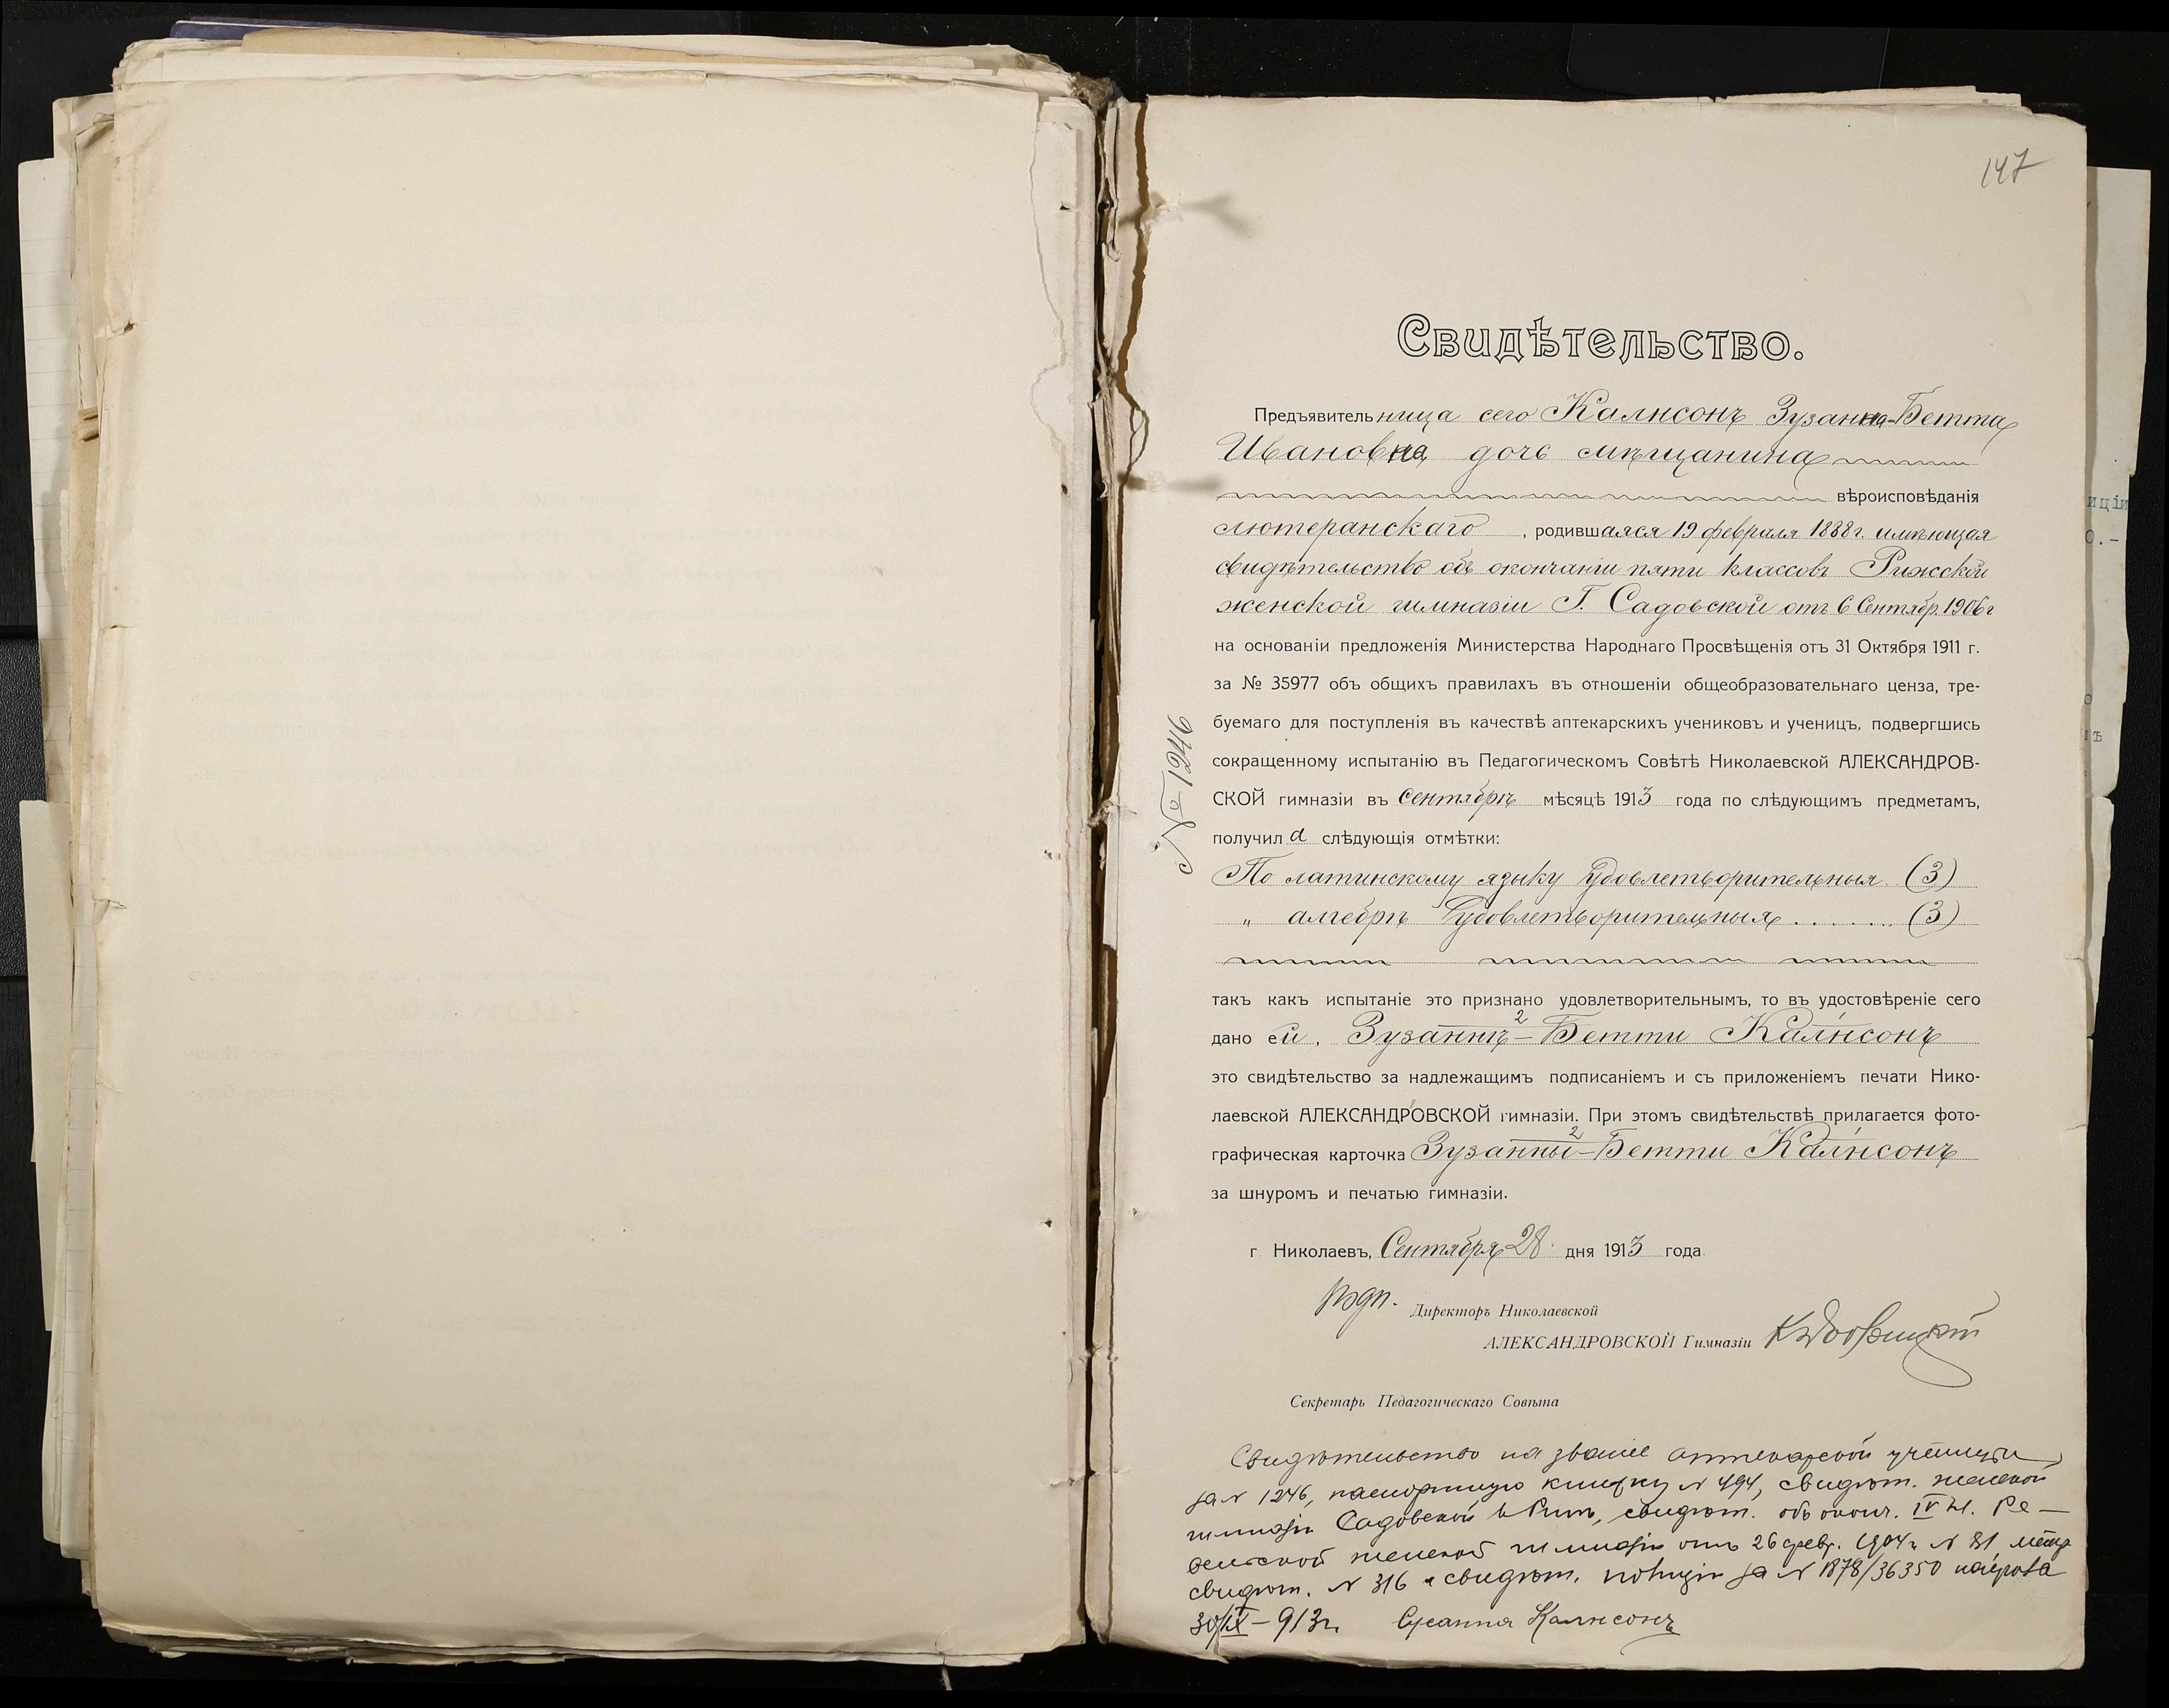 147
Свидѣтельство.
Предъявительница сего Калнсонъ Зузанна-Бетта
Ивановна, дочь мѣщанина
вѣроисповѣданія
лютеранскаго, родившаяся 19 февраля 1888 г. имѣющая
свидѣтельство объ окончаніи пяти классовъ Рижской
женской гимназіи Г. Садовской отъ 6 Сентябр. 1906 г
на основаніи предложенія Министерства Народнаго Просвѣщенія отъ 31 Октября 1911 г.
за № 35977 объ общихъ правилахъ въ отношеніи общеобразовательнаго ценза, тре-
буемаго для поступленія въ качествѣ аптекарскихъ учениковъ и ученицъ, подвергшись
сокращенному испытанію въ Педагогическомъ Совѣтѣ Николаевской АЛЕКСАНДРОВ-
СКОЙ гимназіи въ Сентябрѣ мѣсяцѣ 1913 года по слѣдующимъ предметамъ,
получила слѣдующія отмѣтки:
По латинскому языку удовлетворительныя. (3)
„ алгебрѣ удовлетворительныя ....... (3)
такъ какъ испытаніе это признано удовлетворительнымъ, то въ удостовѣреніе сего
дано ей, Зузаннѣ-Бетти Калнсонъ
это свидѣтельство за надлежащимъ подписаніемъ и съ приложеніемъ печати Нико-
лаевской АЛЕКСАНДРОВСКОЙ гимназіи. При этомъ свидѣтельствѣ прилагается фото-
графическая карточка Зузанны-Бетти Калнсонъ
за шнуромъ и печатью гимназіи.
г. Николаевъ, Сентября 28 дня 1913 года
№ 1246
Подп. Директоръ Николаевской
АЛЕКСАНДРОВСКОЙ Гимназіи
Секретарь Педагогическаго Совѣта
Свидѣтельство на званіе аптекарской ученицы
за № 1246, паспортную книжку № 494, свидѣт. женской
гимназіи Садовской в Ригѣ, свидѣт. объ оконч. IV кл. Ре-
вельской женской гимназіи отъ 26 февр. 1904 г. № 81 метр
свидѣт. № 316 и свидѣт. полиціи за № 1878/36350
30/IX-913 г. Сусанна Калнсонъ
иціи
о.-